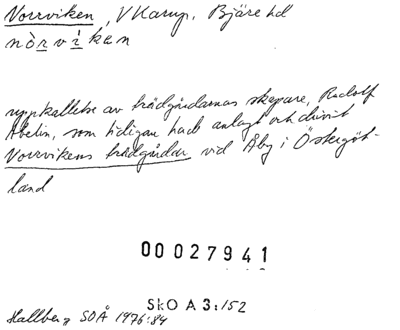 Norrviken, V Karup, Bjäre hd
nòrvìken
uppkallelse av trädgårdarnas skapare, Rudolf
Abelin, som tidigare hade anlagt och drivit
Norrvikens trädgårdar vid Åby i Östergöt-
land
00027941
SkO A3:152
Hallberg SOÅ 1976:84